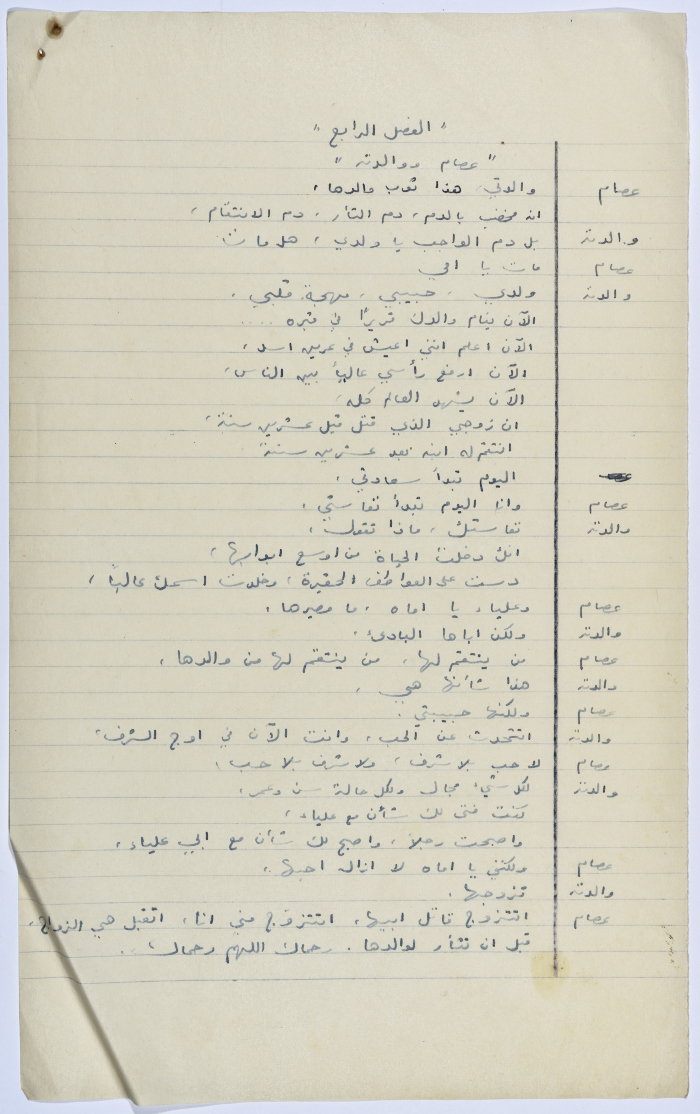 "الفصل الرابع"
"عصام ووالدته"
عصام والدتي، هذا ثوب والدها،
انه مخضب بالدم، دم الثأر، دم الانتقام،
والدته بل دم الواجب يا ولدي، هل مات
عصام مات يا امي
والدته ولدي، حبيبي، مهجة قلبي،
الآن ينام والدك قريرًا في قبره ....
الآن اعلم انني اعيش في عرين اسد،
الآن ارفع رأسي عاليًا بين الناس،
الآن يشهد العالم كله،
ان زوجي الذي قتل قبل عشرين سنة،
انتقم له ابنه بعد عشرين سنة
اليوم تبدأ سعادتي،
عصام وانا اليوم تبدأ تعاستي،
والدته تعاستك، ماذا تقول،
انك دخلت الحياة من اوسع ابوابها،
دست على العواطف الحقيرة، وخلدت اسمك عاليًا،
عصام وعلياء يا اماه، ما مصيرها،
والدته ولكن اباها البادىء،
عصام من ينتقم لها، من ينتقم لها من والدها،
والدته هذا شأنها هي،
عصام ولكنها حبيبتي.
والدته اتتحدث عن الحب، وانت الآن في اوج الشرف،
عصام لا حب بلا شرف، ولا شرف بلا حب،
والدته لكل شيء مجال ولكل حالة سن وعمر،
كنت فتى لك شأن مع علياء،
واصبحت رجلًا، واصبح لك شأن مع ابي علياء،
عصام ولكنني يا اماه لا ازال احبها،
والدته تزوجها،
عصام اتتزوج قاتل ابيها، اتتزوج مني انا، اتقبل هي الزواج،
قبل ان تثأر لوالدها. رحماك اللهم رحماك،..